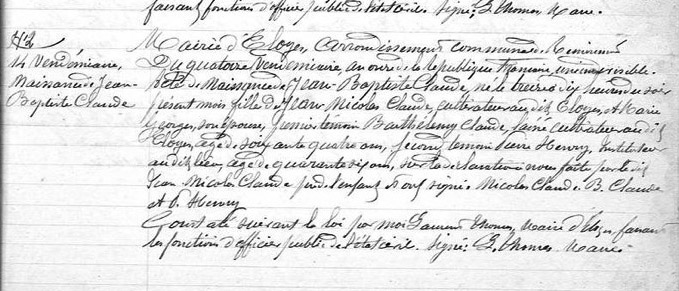 faisant fonction d'officier public de l'état civil. Signé: L. Thomas Maire.
42
14 Vendémiaire,
Naissance de Jean-
Baptiste Claude
Mairie d'Eloyes, arrondissement communal de Remiremont
Du quatorze Vendémiaire, an onze de la République française, une et indivisible.
Acte de Naissance de Jean-Baptiste Claude, né le treize à dix heures du soir
présent mois, fils de Jean Nicolas Claude, cultivateur audit Eloyes, et Marie
Georges, son épouse, premier témoin Barthélemy Claude, l'aîné cultivateur audit
Eloyes, âgé de soixante quatre ans, second témoin Pierre Henry, Instituteur
audit lieu, âgé de quarante six ans, sur la déclaration à nous faite par ledit
Jean Nicolas Claude père de l'enfant et ont signé Nicolas Claude B. Claude
et P. Henry
Constaté suivant la loi par moi Laurent Thomas, Maire d'Eloyes faisant
les fonctions d'officier public de l'état civil. Signé: L. Thomas Maire.